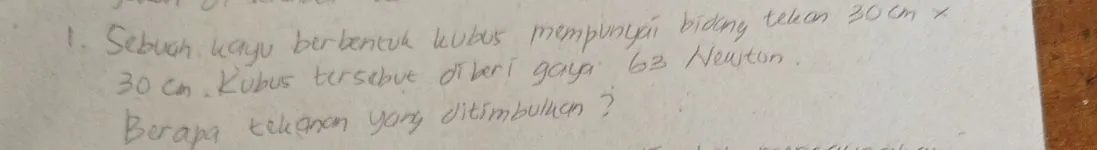 1. Sebuah kayu berbentuk kubus mempunyai bidang tekan 30 cm x
30 cm. Kubus tersebut diberi gaya 63 Newton.
Berapa tekanan yang ditimbulkan?